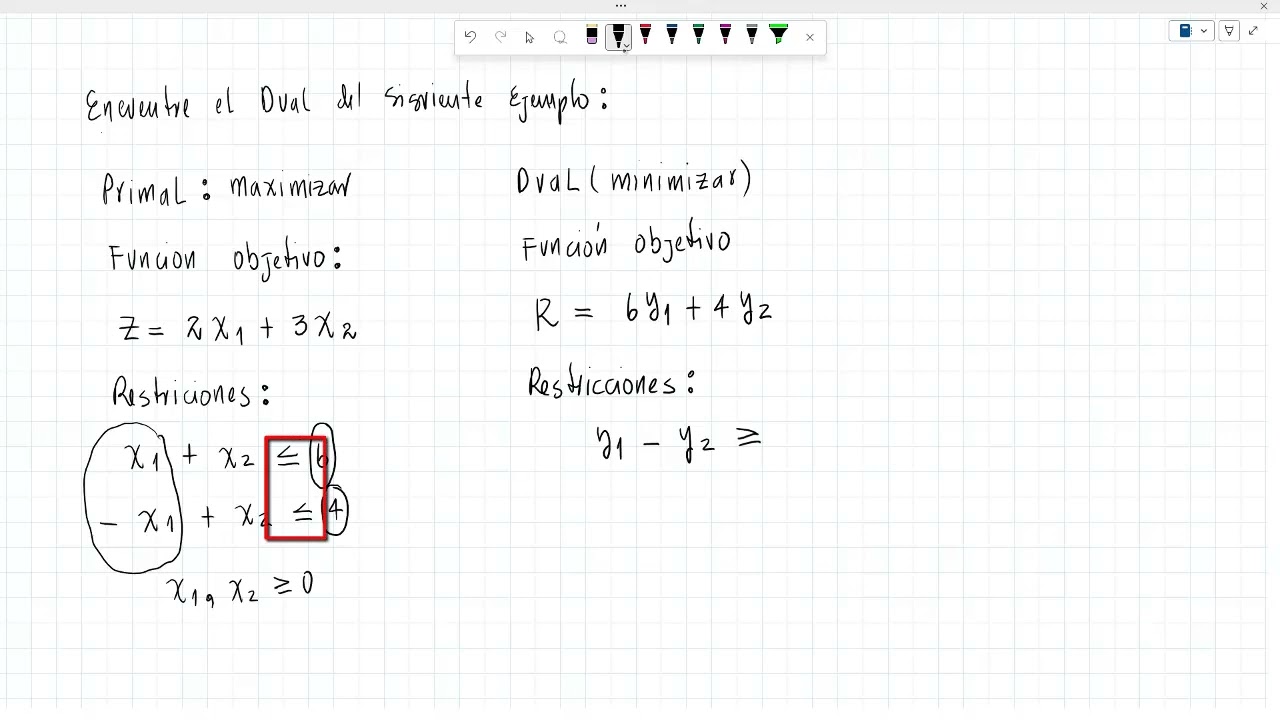 Encuentre el Dual del siguiente Ejemplo:
Primal: maximizar
Funcion objetivo:
Z = 2x1 + 3x2
Restriciones:
x1 + x2 ≤ 6
- x1 + x2 ≤ 4
x1, x2 ≥ 0
Dual (minimizar)
Función objetivo
R = 6y1 + 4y2
Restricciones:
y1 - y2 ≥